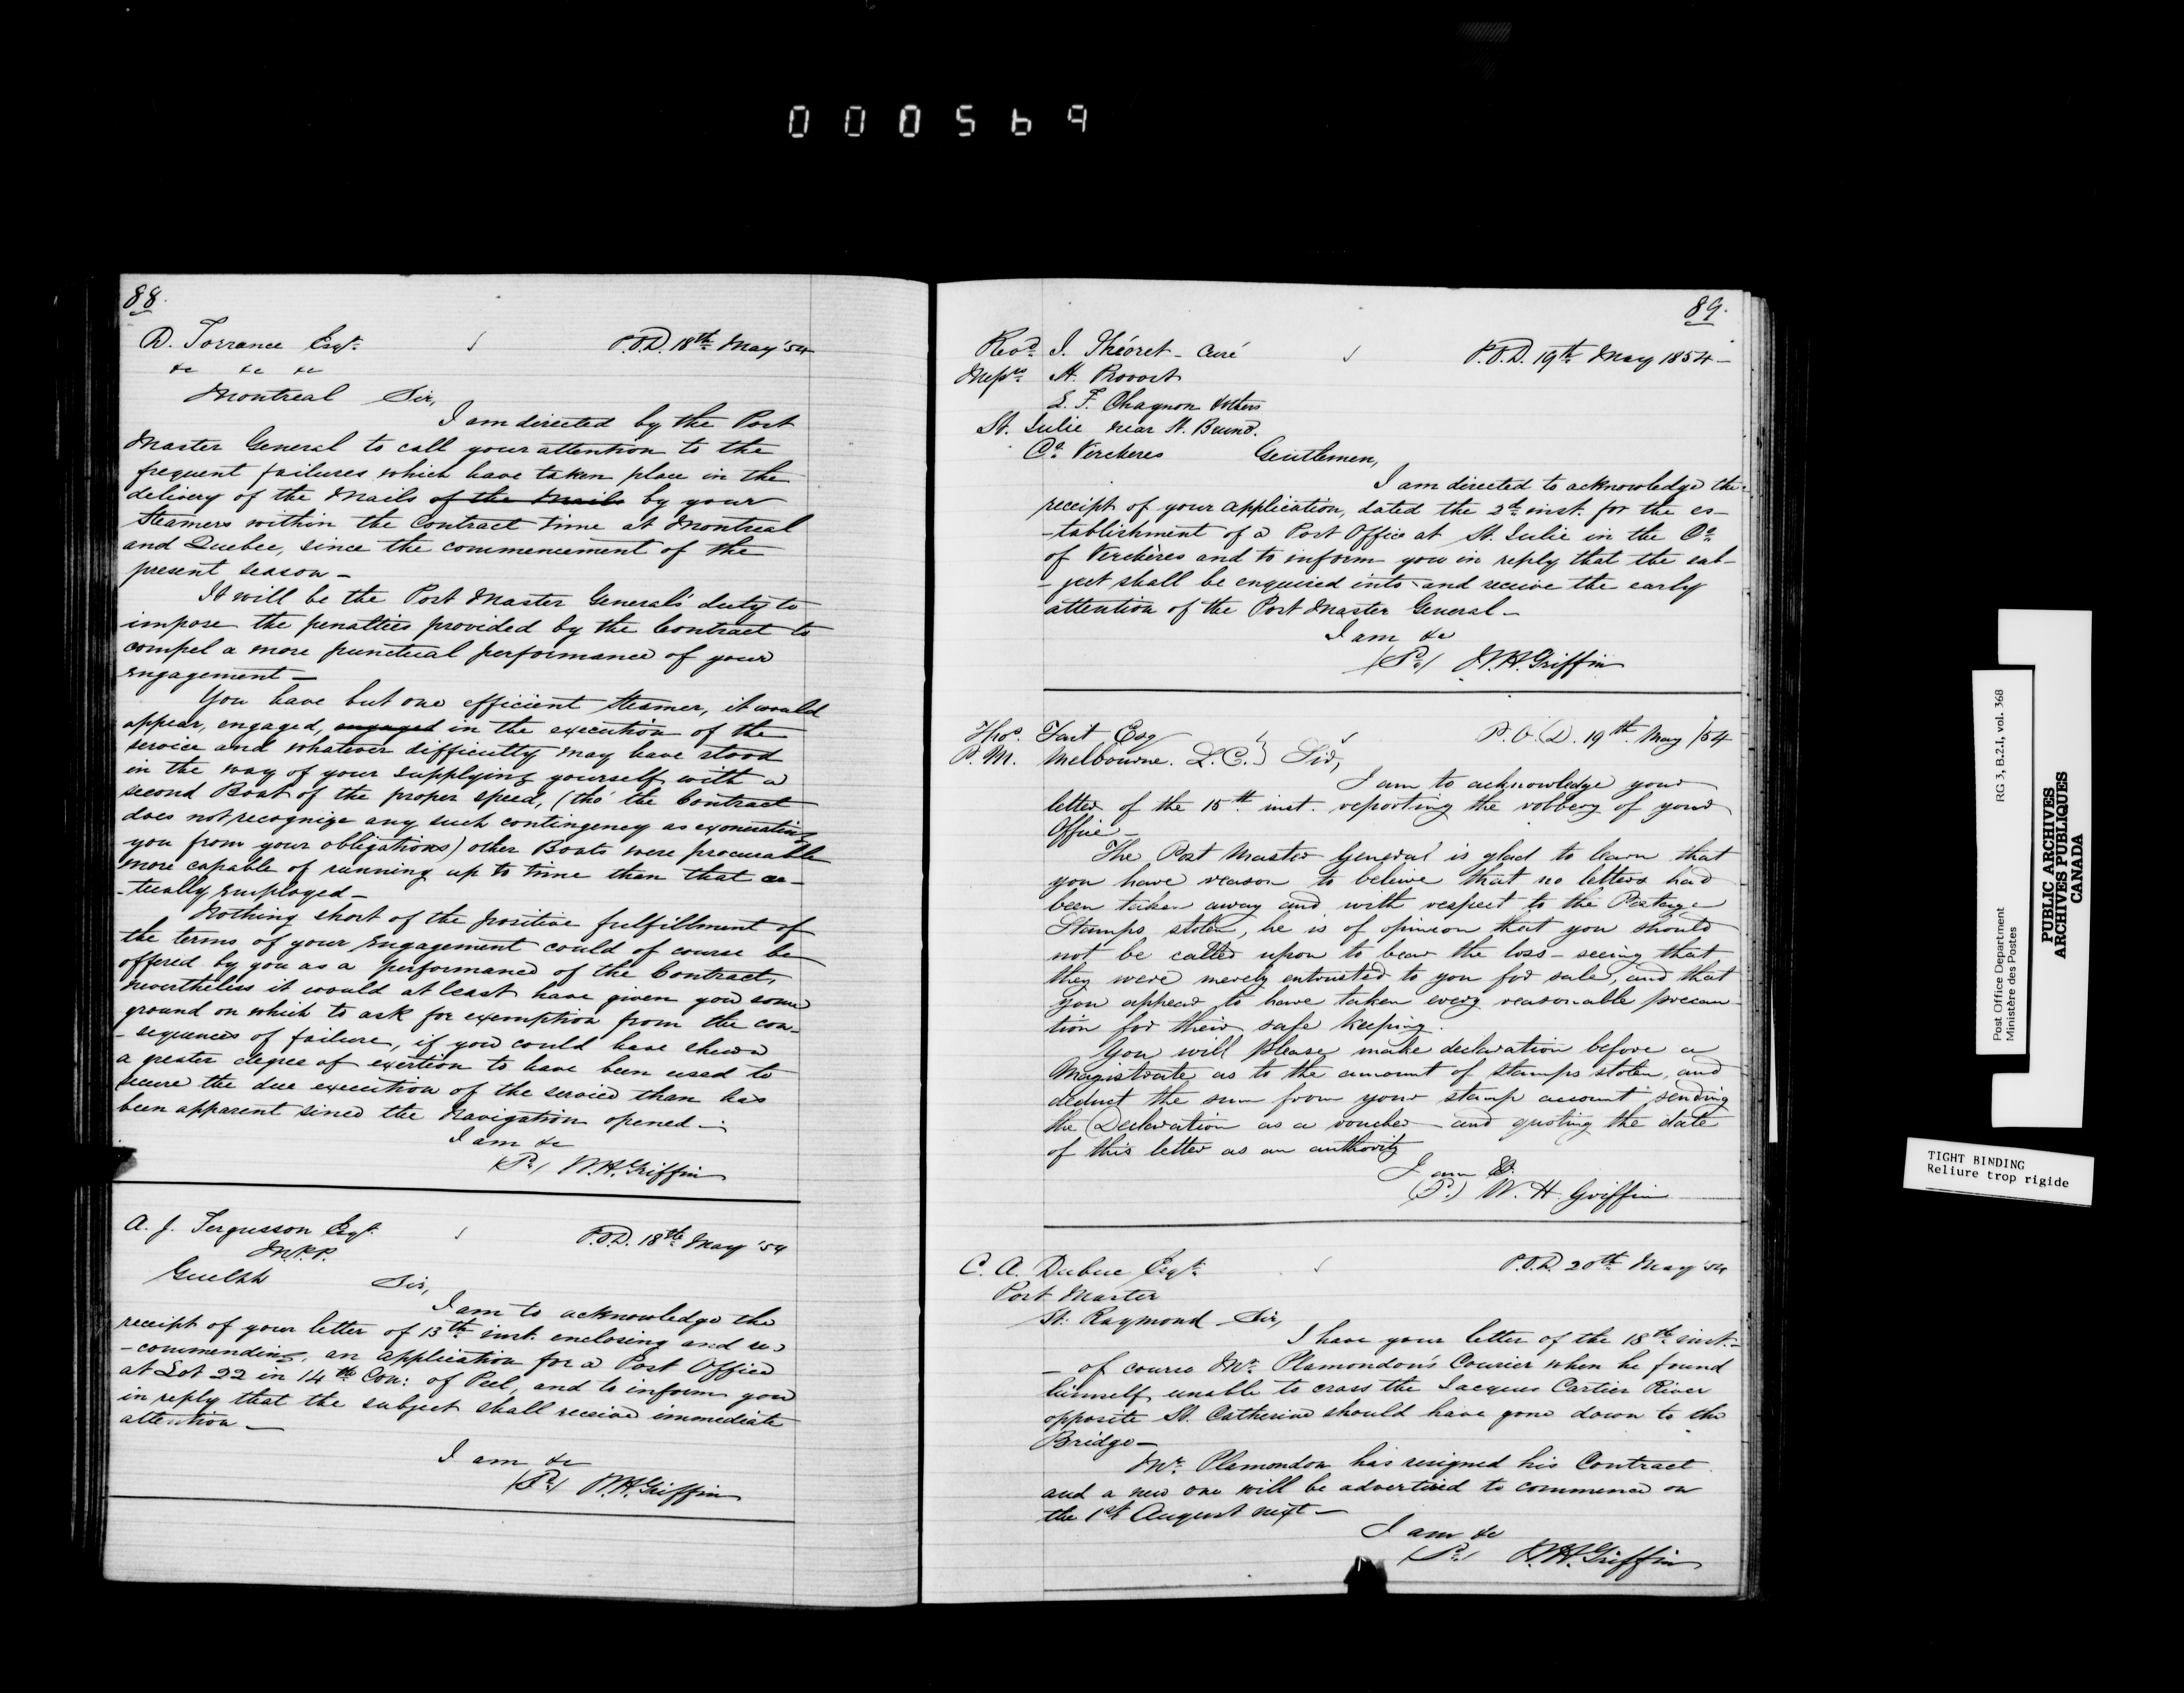 000569
88.
D. Torrance Esqr. P.O.D. 18th May '54
&c &c &c
Montreal Sir,
I am directed by the Post
Master General to call your attention to the
frequent failures which have taken place in the
delivery of the Mails of the Mails by your
Steamers within the contract time at Montreal
and Quebec, since the commencement of the
present season—
It will be the Post Master General's duty to
impose the penalties provided by the Contract to
compel a more punctual performance of your
engagement—
You have but one efficient Steamer, it would
appear, engaged, engaged in the execution of the
service and whatever difficulty may have stood
in the way of your supplying yourself with a
second Boat of the proper speed, (tho' the Contract
does not recognize any such contingency as exonerating
you from your obligations) other Boats were procurable
more capable of running up to time than that ac-
-tually employed—
Nothing short of the positive fulfillment of
the terms of your Engagement could of course be
offered by you as a performance of the Contract,
nevertheless it would at least have given you some
ground on which to ask for exemption from the con-
-sequences of failure, if you could have shewn
a greater degree of exertion to have been used to
secure the due execution of the service than has
been apparent since the Navigation opened—
I am &c
(Sd) W.H. Griffin
A. J. Fergusson Esqr. P.O.D. 18th May '54
M.P.P.
Guelph Sir,
I am to acknowledge the
receipt of your letter of 13th inst. enclosing and re-
-commending, an application for a Post Office
at Lot 22 in 14th Con: of Peel, and to inform you
in reply that the subject shall receive immediate
attention—
I am &c
(Sd) W.H. Griffin
89.
Revd. J. Théoret - Curé P.O.D. 19th May 1854—
Messrs. A. Provost
L. F. Chagnon & others
St. Julie near St. Bruno.
Co. Verchères Gentlemen,
I am directed to acknowledge the
receipt of your application, dated the 2d inst. for the es-
-tablishment of a Post Office at St. Julie in the Co.
of Verchères and to inform you in reply that the sub-
-ject shall be enquired into and receive the early
attention of the Post Master General—
I am &c
(Sd) W.H. Griffin
Thos. Tait Esq P.O.D. 19th May /54
P.M. Melbourne. L.C.} Sir,
I am to acknowledge your
letter of the 15th inst. reporting the robbery of your
Office—
The Post Master General is glad to learn that
you have reason to believe that no letters had
been taken away and with respect to the Postage
Stamps stolen, he is of opinion that you should
not be called upon to bear the loss—seeing that
they were merely entrusted to you for sale, and that
you appear to have taken every reasonable precau-
tion for their safe keeping.
You will please make declaration before a
Magistrate as to the amount of stamps stolen, and
deduct the sum from your stamp account sending
the Declaration as a voucher—and quoting the date
of this letter as an authority
I am &c
(Sd.) W. H. Griffin
C. A. Dubuc Esqr. P.O.D. 20th May '54
Post Master
St. Raymond Sir,
I have your letter of the 18th inst.—
—of course Mr. Plamondon's Courier when he found
himself unable to cross the Jacques Cartier River
opposite St. Catherine should have gone down to the
Bridge—
Mr. Plamondon has resigned his Contract
and a new one will be advertised to commence on
the 1st August next—
I am &c
(Sd) W.H. Griffin
Post Office Department RG 3, B.2.1, vol. 368
Ministère des Postes
PUBLIC ARCHIVES
ARCHIVES PUBLIQUES
CANADA
TIGHT BINDING
Reliure trop rigide